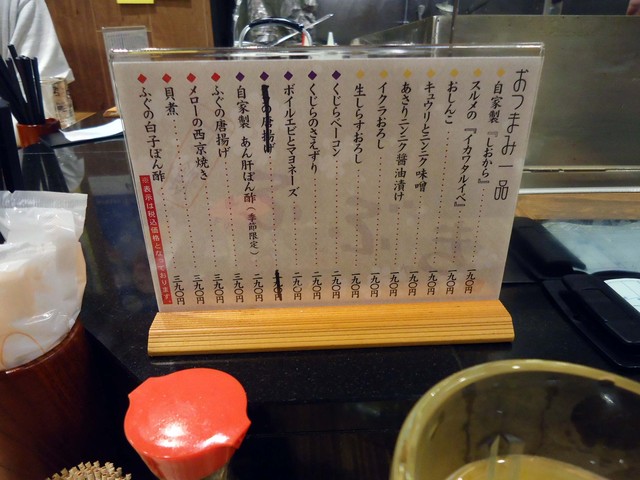 おつまみ一品
自家製『しおから』 一九〇円
スルメの『イカワタルイベ』 一九〇円
おしんこ 一九〇円
キュウリとニンニク味噌 一九〇円
あさりニンニク醤油漬け 一九〇円
イクラおろし 一九〇円
生しらすおろし 一九〇円
くじらベーコン 二九〇円
くじらのさえずり 二九〇円
ボイルエビとマヨネーズ 二九〇円
の唐揚げ
自家製 あん肝ぽん酢(季節限定) 二九〇円
ふぐの唐揚げ 三九〇円
メローの西京焼き 三九〇円
貝煮 三九〇円
ふぐの白子ぽん酢 三九〇円
※表示は税込価格となっております